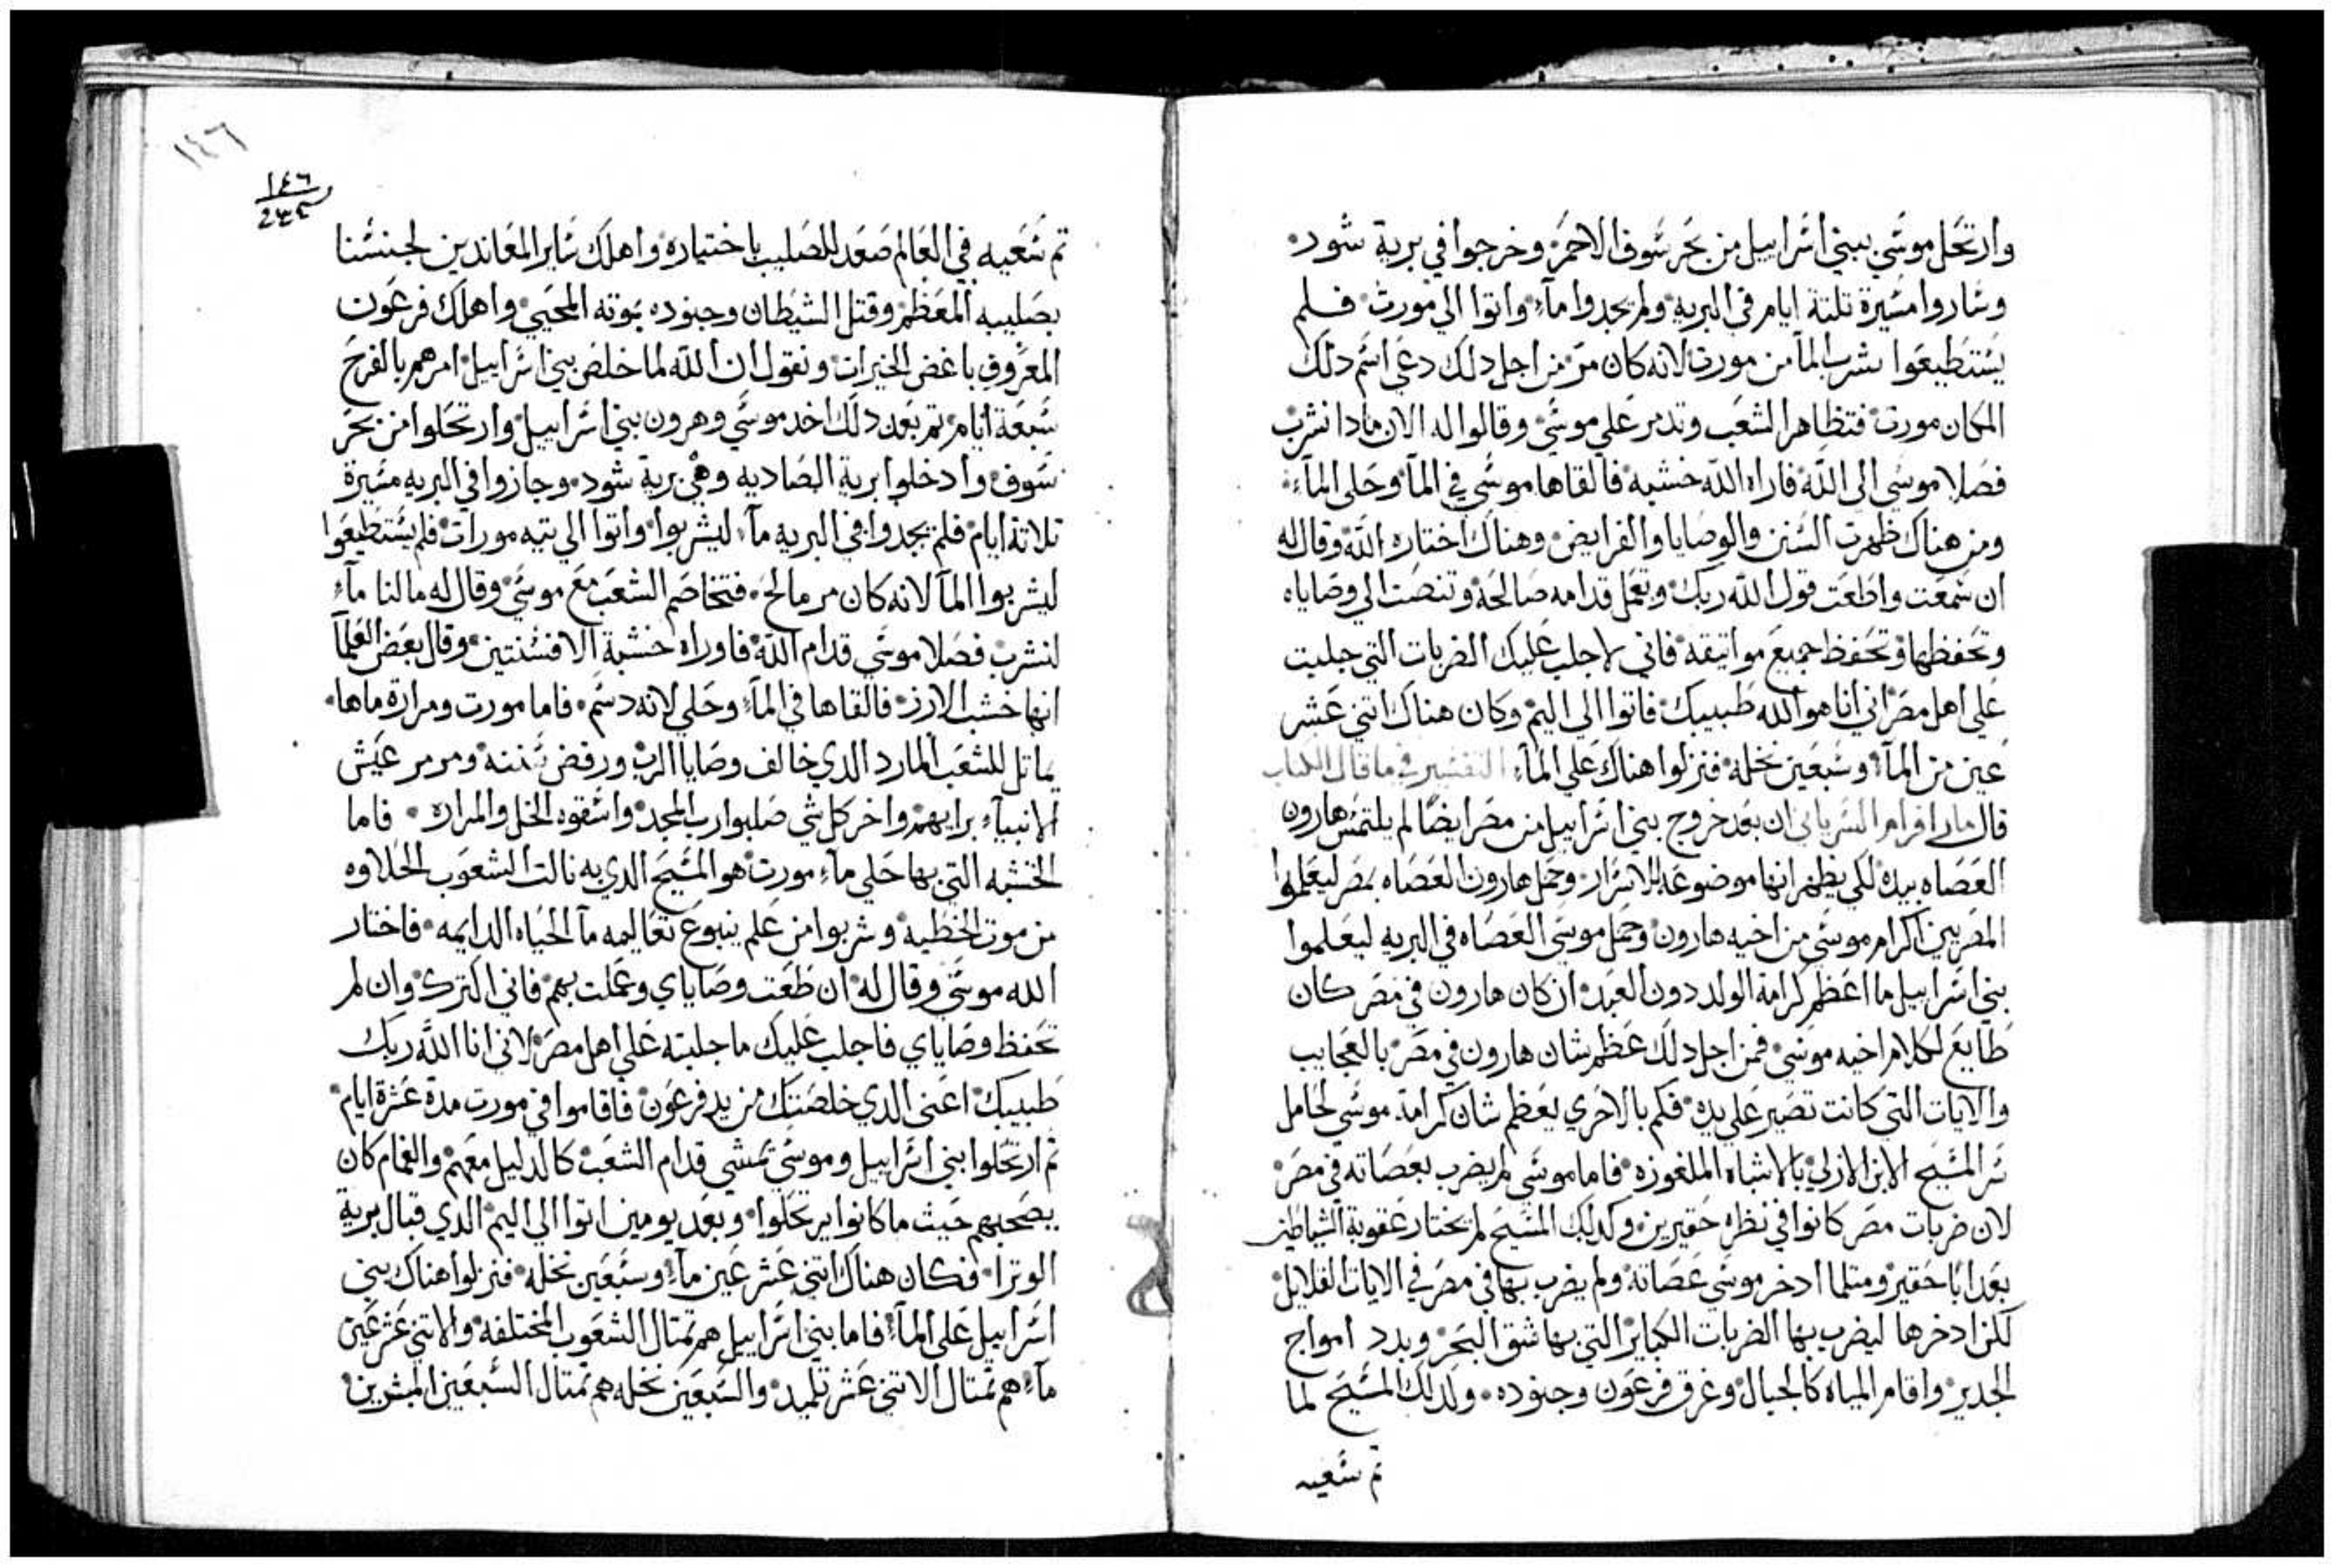 وارتحل موسي ببني اسراييل من بحر سوف الاحمر وخرجوا في برية شود
وساروا مسيرة تلتة ايام في البريه ولم يجدوا مآء واتوا الي مورت فلم
يستطيعوا شرب المآ من مورت لانه كان مر من اجل دلك دعي اسم دلك
المكان مورت فتظاهر الشعب وتدمر علي موسي وقالوا له الان مادا نشرب
فصلا موسي الى الله فاراه الله خشبه فالقاها موسي في المآ وحلى المآء
ومن هناك ظهرت السنن والوصايا والفرايض وهناك اختاره الله وقال له
ان سمعت واطعت قول الله ربك وتعمل قدامه صالحة وتنصت الي وصاياه
وتحفظها وتحفظ جميع مواتيقه فاني لاجلب عليك الضربات التي جلبت
علي اهل مصر اني انا هو الله طبيبك فاتوا الي اليم وكان هناك اتني عشر
عين من المآ وسبعين نخله فنزلوا هناك علي المآء التفسير في ما قال الكتاب
قال مار افرام السرياني ان بعد خروج بني اسراييل من مصر ايضا لم يلتمس هارون
العصاه بيده لكي يظهر انها موضوعه للاسرار وحمل هارون العصاه بمصر ليعلموا
المصريين اكرام موسي من اخيه هارون وحمل موسي العصاه في البريه ليعلموا
بني اسراييل ما اعظم كرامة الولد دون العبد ان كان هارون في مصر كان
طايع لكلام اخيه موسي فمن اجل دلك عظم شان هارون في مصر بالعجايب
والايات التي كانت تصير علي يده فكم بالاحري يعظم شان كرامة موسي لحامل
سر المسيح الابن الازلي بالاشباه الملغوزه فاما موسي لم يضرب بعصاته في مصر
لان ضربات مصر كانوا في نظره حقيرين وكدلك المسيح لم يختار عقوبة الشياطين
بعدابا حقير ومتلما ادخر موسي عصاته ولم يضرب بها في مصر في الايات القلايل
لكن ادخرها ليضرب بها الضربات الكباير التي بها شق البحر وبدد امواج
الجدير واقام المياه كالجبال وغرق فرعون وجنوده ولدلك المسيح لما
تم سعيه
١٤٦
١٤٦
تم سعيه في العالم صعد للصليب باختياره واهلك ساير المعاندين لجنسنا
بصليبه المعظم وقتل الشيطان وجنوده بموته المحيي واهلك فرعون
المعروف باغض الخيرات ونقول ان الله لما خلص بني اسراييل امرهم بالفرح
سبعة ايام تم بعد دلك اخد موسي وهرون بني اسراييل وارتحلوا من بحر
سوف وادخلوا برية الصاديه وهي برية شود وجازوا في البريه مسيرة
تلاتة ايام فلم يجدوا في البريه مآء ليشربوا واتوا الي تيه مورات فلم يستطيعوا
ليشربوا المآ لانه كان مر مالح فتخاصم الشعب مع موسي وقال له ما لنا مآء
لنشرب فصلا موسي قدام الله فاوراه خشبة الافسنتين وقال بعض العلمآ
انها خشب الارز فالقاها في المآء وحلي لانه دسم فاما مورت ومرارة ماها
يماتل للشعب المارد الدي خالف وصايا الرب ورفض سننه ومرمر عيش
الانبيآء برايهم واخر كل شي صلبوا رب المجد واسقوه الخل والمراره فاما
الخشبه التي بها حلي مآء مورت هو المسيح الدي به نالت الشعوب الحلاوه
من موت الخطيه وشربوا من علم ينبوع تعاليمه مآ الحياه الدايمه فاختار
الله موسي وقال له ان طعت وصاياي وعملت بهم فاني اكترك وان لم
تحفظ وصاياي فاجلب عليك ما جلبته علي اهل مصر لاني انا الله ربك
طبيبك اعني الدي خلصتك من يد فرعون فاقاموا في مورت مدة عشرة ايام
تم ارتحلوا بني اسراييل وموسي تمشي قدام الشعب كالدليل معهم والغمام كان
يصحبهم حيث ما كانوا يرتحلوا وبعد يومين اتوا الي اليم الدي قبال برية
الوترا فكان هناك اتني عشر عين مآء وسبعين نخله فنزلوا هناك بني
اسراييل علي المآء فاما بني اسراييل هم تمتال الشعوب المختلفه والاتني عشر عين
مآء هم تمتال الاتني عشر تلميد والسبعين نخله هم تمتال السبعين المبشرين